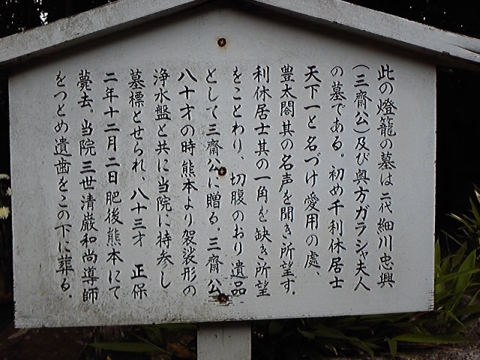 此の燈籠の墓は二代細川忠興
(三齋公)及び奥方ガラシャ夫人
の墓である。初め千利休居士
天下一と名づけ愛用の處、
豊太閤其の名声を聞き所望す、
利休居士其の一角を缺き所望
をことわり、切腹のおり遺品
として三齋公に贈る。三齋公
八十才の時熊本より袈裟形の
浄水盤と共に当院に持参し
墓標とせられ、八十三才 正保
二年十二月二日肥後熊本にて
薨去、当院三世清厳和尚導師
をつとめ遺歯をこの下に葬る。